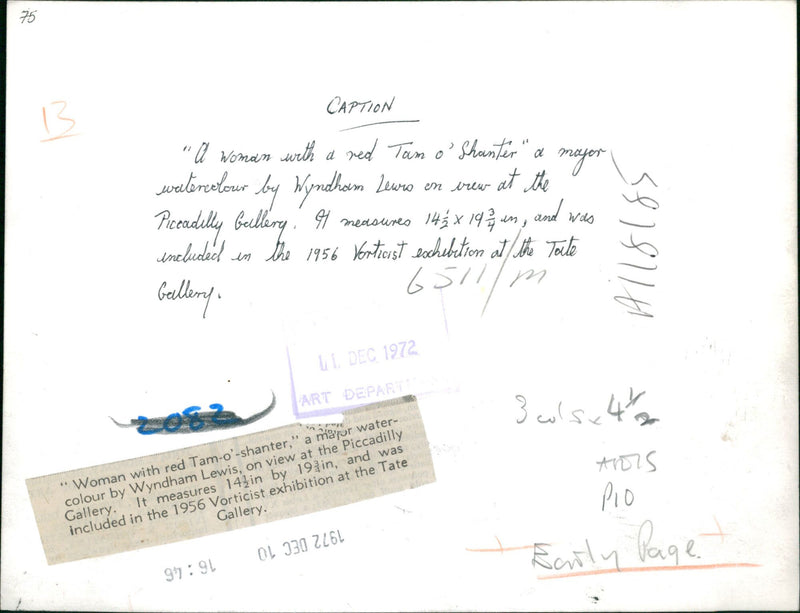 75
13
CAPTION
"A woman with a red Tam o' Shanter" a major
watercolour by Wyndham Lewis on view at the
Piccadilly Gallery. It measures 14½ x 19¾ in, and was
included in the 1956 Vorticist exhibition at the Tate
Gallery.
6511/m
A118185
11 DEC 1972
ART DEPART
2082
3 cols x 4½
P10
Early Page.
"Woman with red Tam-o'-shanter," a major water-
colour by Wyndham Lewis, on view at the Piccadilly
Gallery. It measures 14½in by 19¾in, and was
included in the 1956 Vorticist exhibition at the Tate
Gallery.
1972 DEC 10 16:46